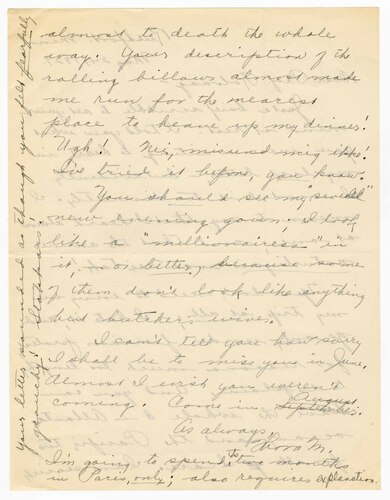 almost to death the whole
way. Your description of the
rolling billows almost made
me run for the nearest
place to heave up my dinner!
Ugh! Nee, misund mig ikke!
I've tried it before, you know.
You should see my "swell"
new evening gown. I look
like a "millionairess" in
it, or better, because some
of them don't look like anything
but butcher's wives.
I can't tell you how sorry
I shall be to miss you in June.
Almost I wish you weren't
coming. Come in August
September.
As always
Thora M.
I'm going to spend the two months
in Paris, only; also requires explanation.
your letter sounded as though you felt fearfully
grouchy!